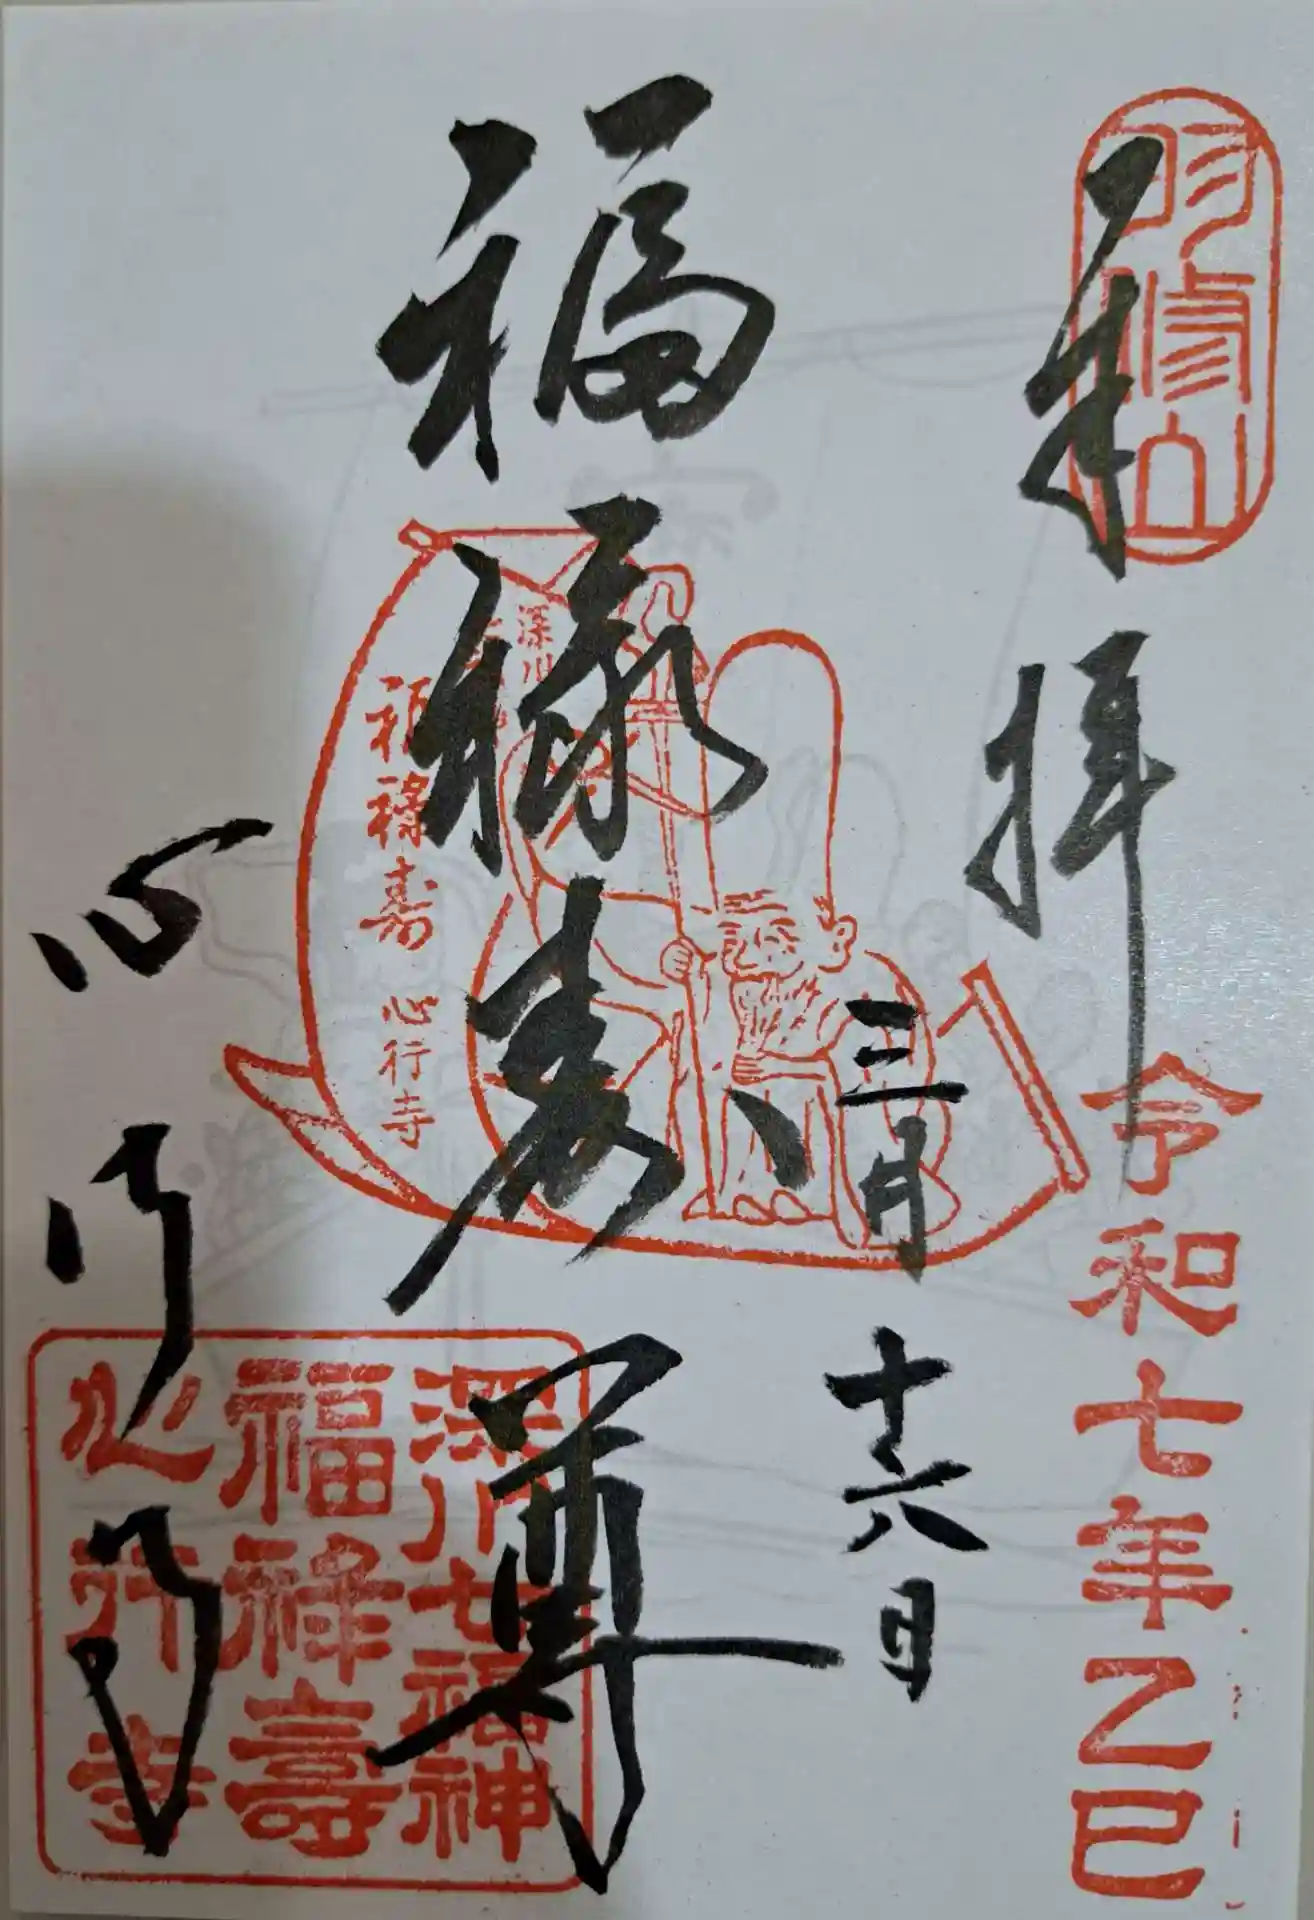 修山
奉拝
令和七年乙巳
三月十六日
福禄寿尊
深川
福禄寿 心行寺
心行寺
深川七福神
福禄壽
心行寺